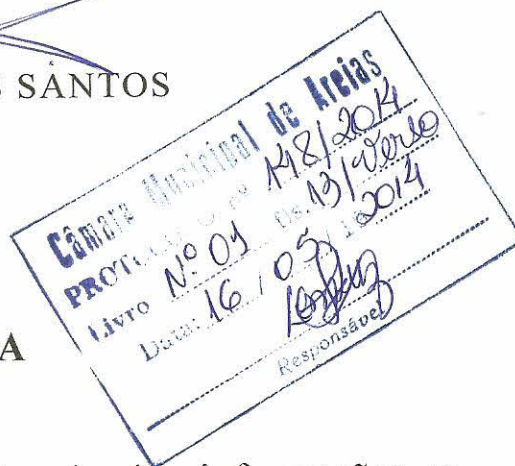 SANTOS
Câmara Municipal de Areias
PROTOCOLO nº 148/2014
Livro Nº 01 Fls. 13/Verso
Data: 16 / 05 / 2014
Responsável
A